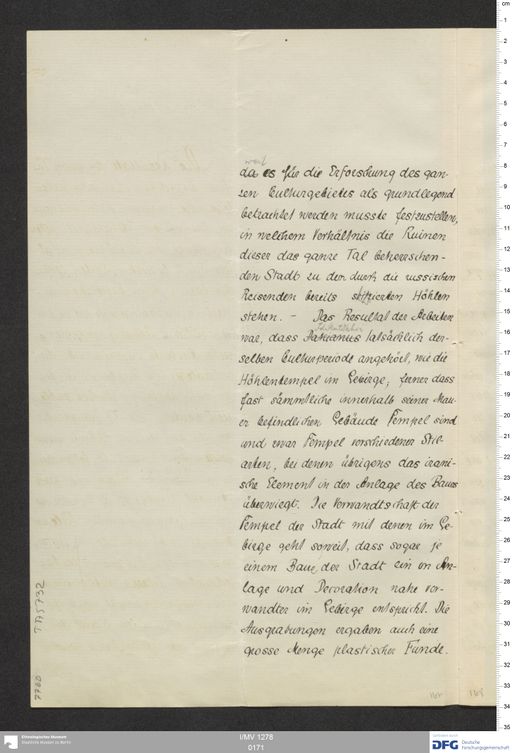 weil
da es für die Erforschung des gan-
zen Culturgebietes als grundlegend
betrachtet werden musste festzustellen,
in welchem Verhältnis die Ruinen
dieser das ganze Tal beherrschen-
den Stadt zu den durch die russischen
Reisenden bereits skizzierten Höhlen
stehen. - Das Resultat der Arbeiten
war, dass Dakianus tatsächlich der-
selben Culturperiode angehört, wie die
Höhlentempel im Gebirge; ferner dass
fast sämmtliche innerhalb seiner Mau-
er befindlichen Gebäude Tempel sind
und zwar Tempel verschiedener Stil-
arten, bei denen übrigens das irani-
sche Element in der Anlage des Baues
überwiegt. Die Verwandtschaft der
Tempel der Stadt mit denen im Ge-
birge geht soweit, dass sogar je
einem Baue der Stadt ein in An-
lage und Decoration nahe ver-
wandter im Gebirge entspricht. Die
Ausgrabungen ergaben auch eine
grosse Menge plastischer Funde.
TA 5732
7700
168
Ethnologisches Museum
Staatliche Museen zu Berlin
I/MV 1278
0171
DFG Deutsche
Forschungsgemeinschaft